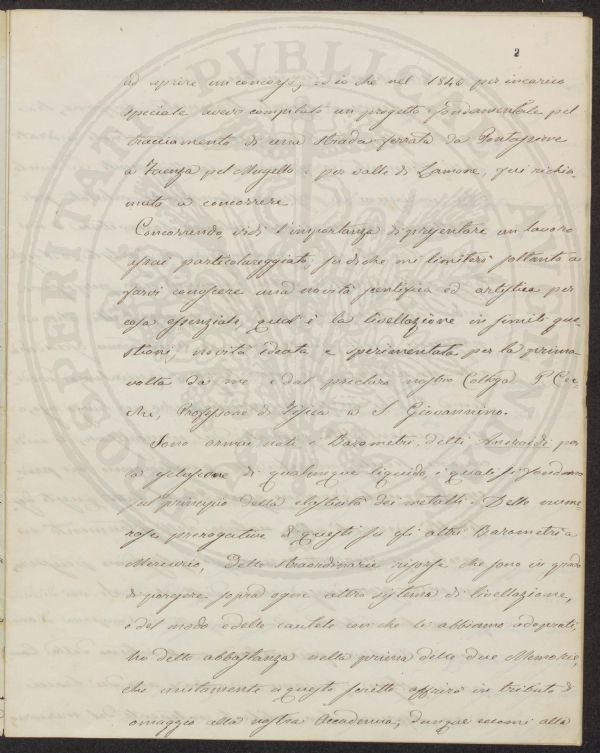 2
ad aprire un concorso, ed io che nel 1846 per incarico
speciale avevo compilato un progetto fondamentale pel
tracciamento di una strada ferrata da Pontassieve
a Faenza pel Mugello e per valle di Lamone, fui richia-
mato a concorrere
Concorrendo, vidi l'importanza di presentare un lavoro
assai particolareggiato su di che mi limiterò soltanto a
farvi conoscere una novità scentifica ed artistica per
cosa essenziale, qual è la livellazione in simili que-
stioni, novità ideata e sperimentata per la prima
volta da me e dal preclaro nostro Collega P. Cec-
chi, Professore di Fisica a S. Giovannino.
Sono ormai noti i Barometri, detti Aneroidi per
la esclusione di qualunque liquido, i quali si fondano
sul principio della elasticità dei metalli. Delle nume-
rose prerogative di questi su gli altri Barometri a
Mercurio, delle straordinarie risorse che sono in grado
di porgere sopra ogni altro sistema di livellazione,
e del modo e delle cautele con che li abbiamo adoprati,
ho detto abbastanza nella prima delle due Memorie,
che unitamente a questo scritto offrirò in tributo d'
omaggio alla nostra Accademia; dunque eccomi alla
PVBLICAE
PROSPERITATI